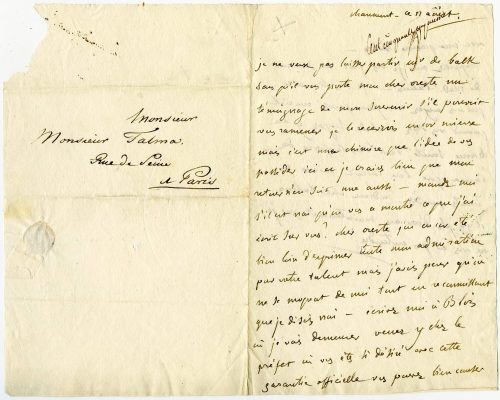 Monsieur
Monsieur Talma,
Rue de Seine
a Paris
chaumont ce 17 aoust.
je ne veux pas laisser partir mr de balk
sans qu'il vous porte mon cher oreste un
témoignage de mon souvenir s'il pouvoit
vous ramener je le recevrois encor mieux
mais c'est une chimère que l'idée de vous
posséder ici et je crains bien que mon
retour n'en soit une aussi — mandez moi
s'il est vrai qu'on vous a montré ce que j'ai
écrit sur vous? cher oreste j'ai encor été
bien loin d'exprimer toute mon admiration
pour votre talent mais j'avois peur qu'on
ne se moquat de moi tout en reconnoissant
que je disois vrai — écrivez moi à Blois
où je vais demeurer venez y chez le
préfet où vous êtes si désiré avec cette
garantie officielle vous pouvez bien causer